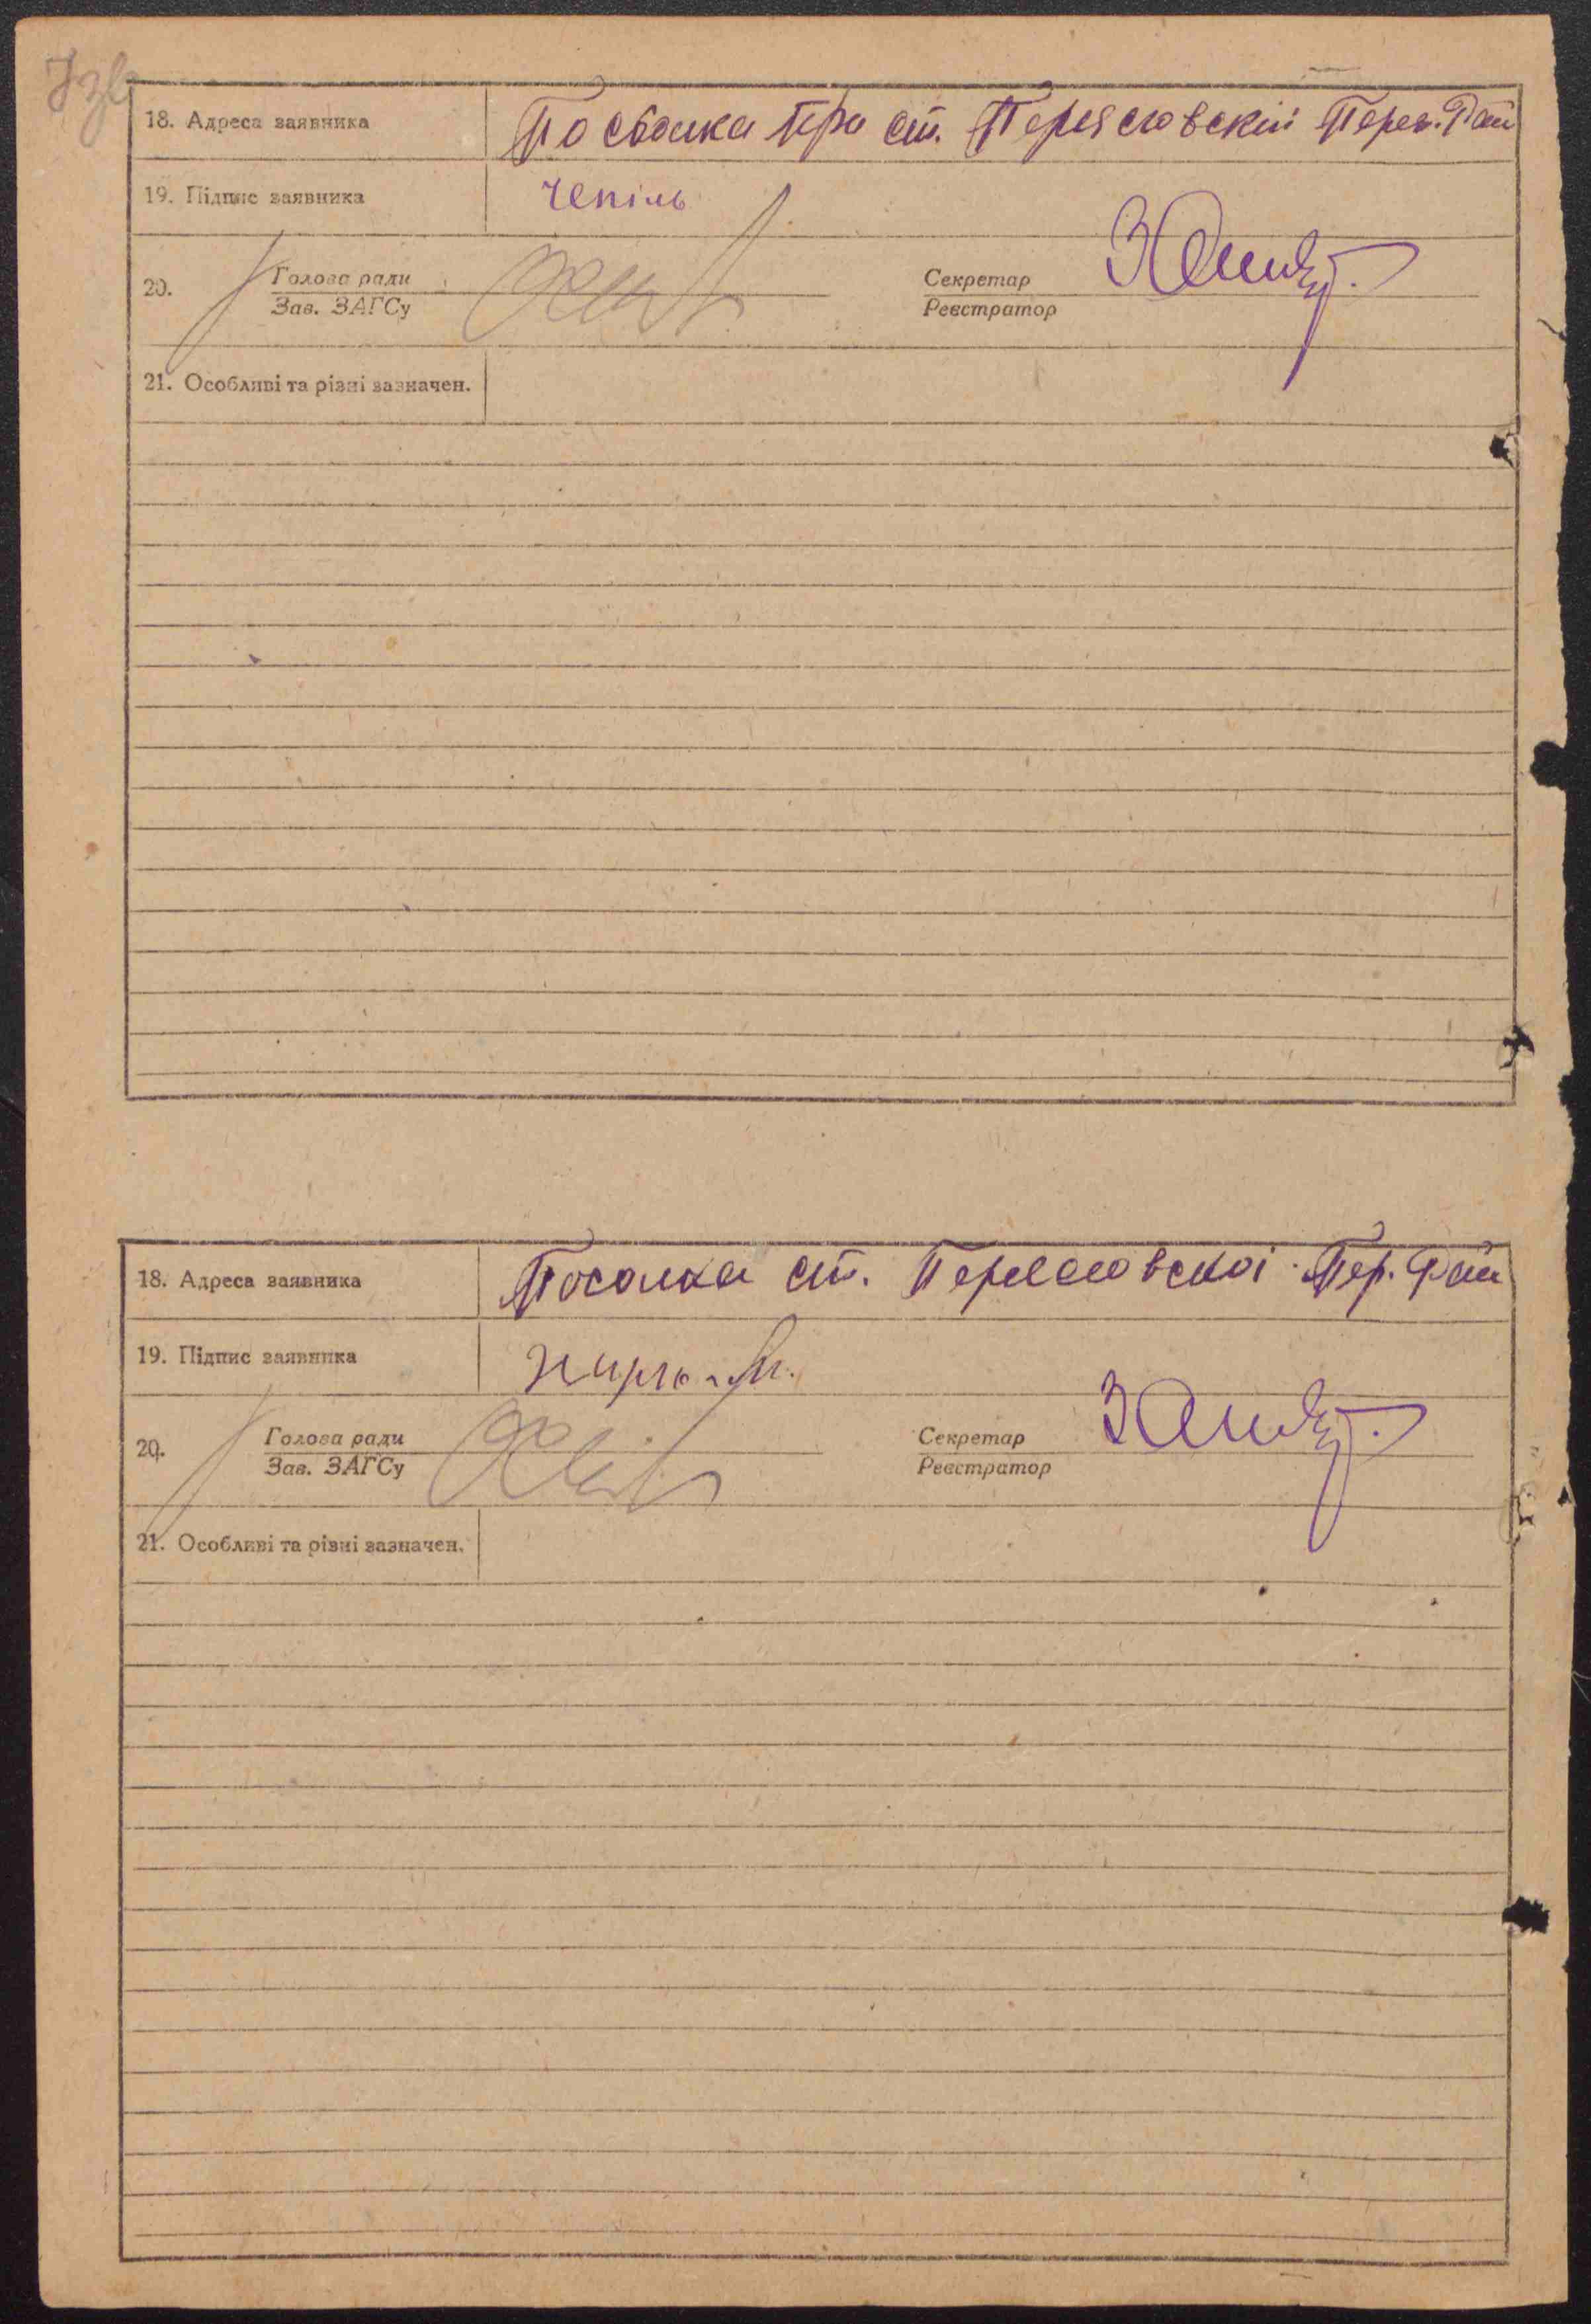 7зв
18. Адреса заявника Посьолка при ст. Переясловскій Перея. Рай
19. Підпис заявника Чепіль
20. Голова ради
Зав. ЗАГСу
Секретар
Реєстратор
21. Особливі та різні зазначен.
18. Адреса заявника Посолка ст. Переяловскоі Пер. Рай
19. Підпис заявника
20. Голова ради
Зав. ЗАГСу
Секретар
Реєстратор
21. Особливі та різні зазначен.